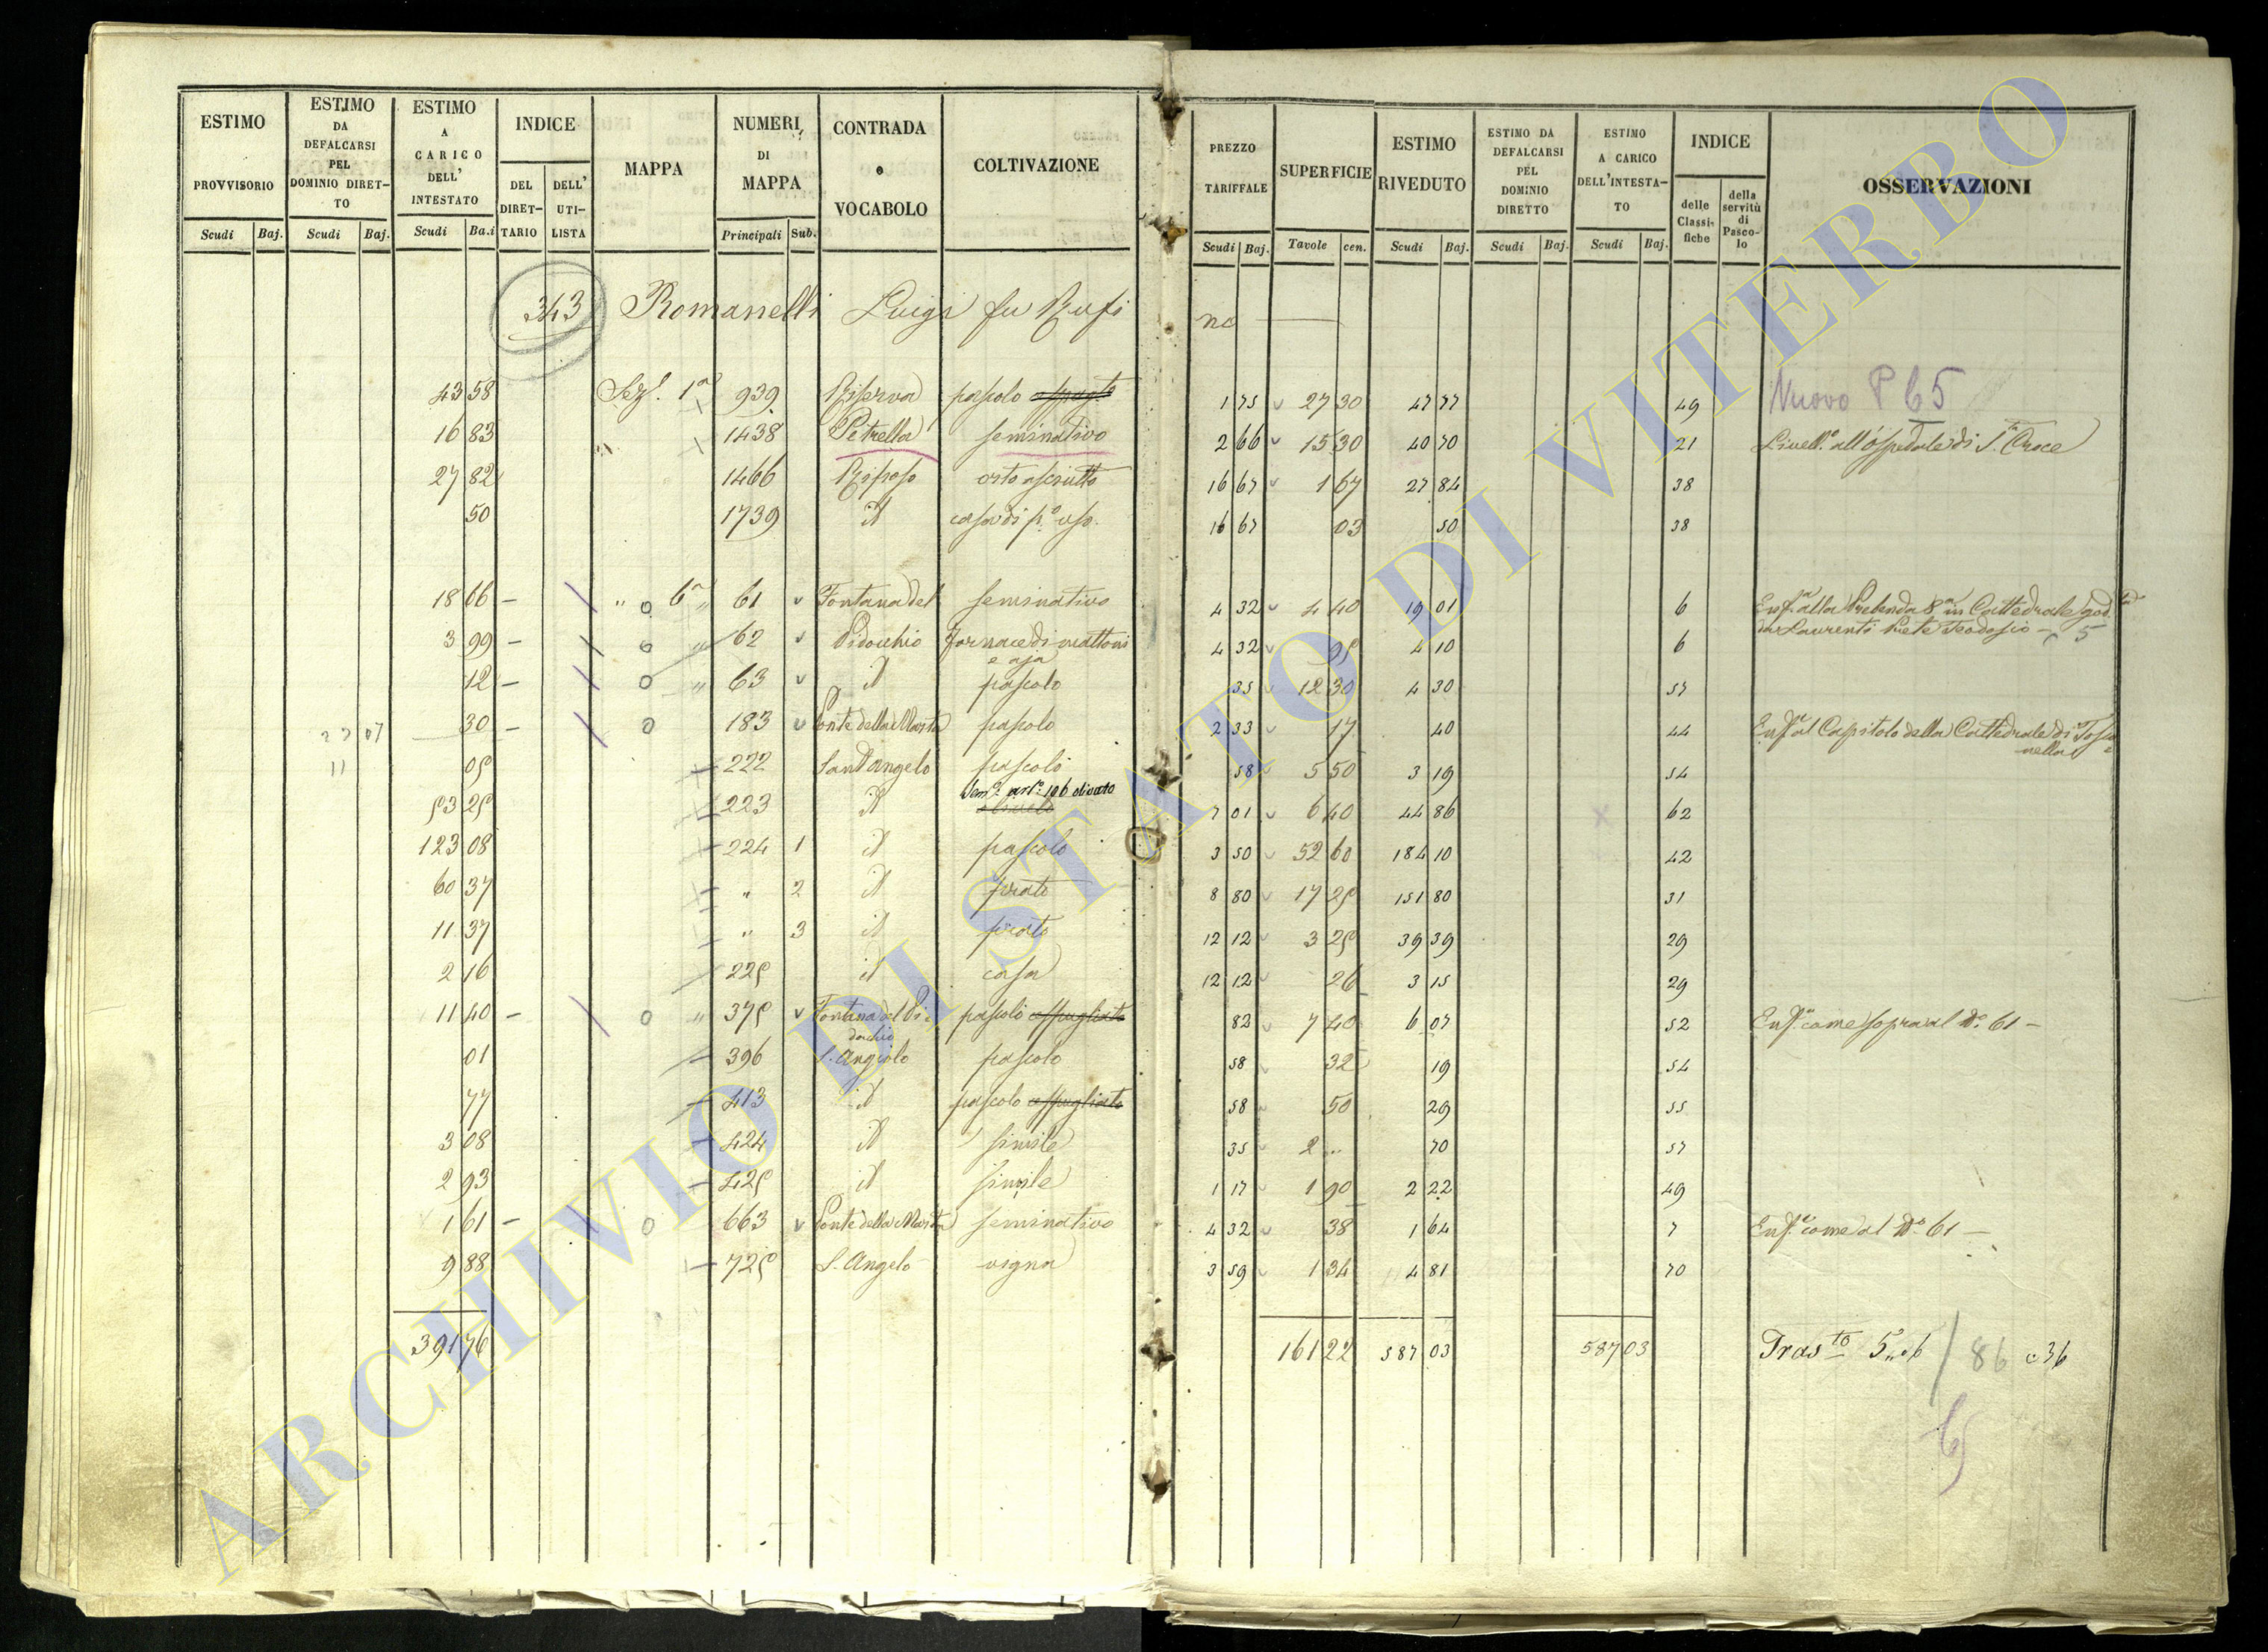 ESTIMO PROVVISORIO Scudi Baj.
ESTIMO DA DEFALCARSI PEL DOMINIO DIRET-TO Scudi Baj.
ESTIMO A CARICO DELL' INTESTATO Scudi Ba.i
INDICE DEL DIRET-TARIO DELL' UTI-LISTA
MAPPA
NUMERI DI MAPPA Principali Sub.
CONTRADA o VOCABOLO
COLTIVAZIONE
PREZZO TARIFFALE Scudi Baj.
SUPERFICIE Tavole cen.
ESTIMO RIVEDUTO Scudi Baj.
ESTIMO DA DEFALCARSI PEL DOMINIO DIRETTO Scudi Baj.
ESTIMO A CARICO DELL'INTESTA-TO Scudi Baj.
INDICE delle Classi-fiche della servitù di Pasco-lo
OSSERVAZIONI
343 Romanelli Luigi fu Rufi no
Nuovo P 65
43 58 Sez.e 1a 939 Riserva pascolo 1 75 27 30 47 77 49
16 83 " 1438 Petrella seminativo 2 66 15 30 40 70 21 Livell.o all'Ospedale di S. Croce
27 82 1466 Riposo orto asciutto 16 67 1 67 27 84 38
50 1739 id casa di p.o uso 16 67 03 50 38
18 66 – " 6a " 61 Fontana del seminativo 4 32 4 40 19 01 6 Enf.a alla Prebenda 8a in Cattedrale god.
da Laurenti Prete Teodosio – 5
3 99 – " 62 Pidocchio fornace di mattoni 4 32 95 4 10 6
e aja
12 – " 63 id pascolo 35 12 30 4 30 57
30 – 183 Ponte della Marta pascolo 2 33 17 40 44 Enf.a al Capitolo della Cattedrale di Tosca
nella
11 05 222 Sant'angelo pascolo 58 5 50 3 19 54
53 25 223 id Sem.o art.o 196 olivato 7 01 6 40 44 86 62
123 08 224 1 id pascolo 3 50 52 60 184 10 42
60 37 " 2 id prato 8 80 17 25 151 80 31
11 37 " 3 id prato 12 12 3 25 39 39 29
2 16 225 id casa 12 12 26 3 15 29
11 40 – " 375 Fontana del Pi- pascolo cespugliato 82 7 40 6 07 52 Enf.a come sopra al N.o 61 –
docchio
01 396 S. Angiolo pascolo 58 32 19 54
77 413 id pascolo cespugliato 58 50 29 55
3 08 424 id simile 35 2 .. 70 57
2 93 425 id simile 1 17 1 90 2 22 49
1 61 – 663 Ponte della Marta seminativo 4 32 38 1 64 7 Enf.a come al N.o 61 –
9 88 725 S. Angelo vigna 3 59 1 34 4 81 70
391 76 161 22 587 03 587 03 Tras.to 5 / 86 c 36
65
ARCHIVIO DI STATO DI VITERBO